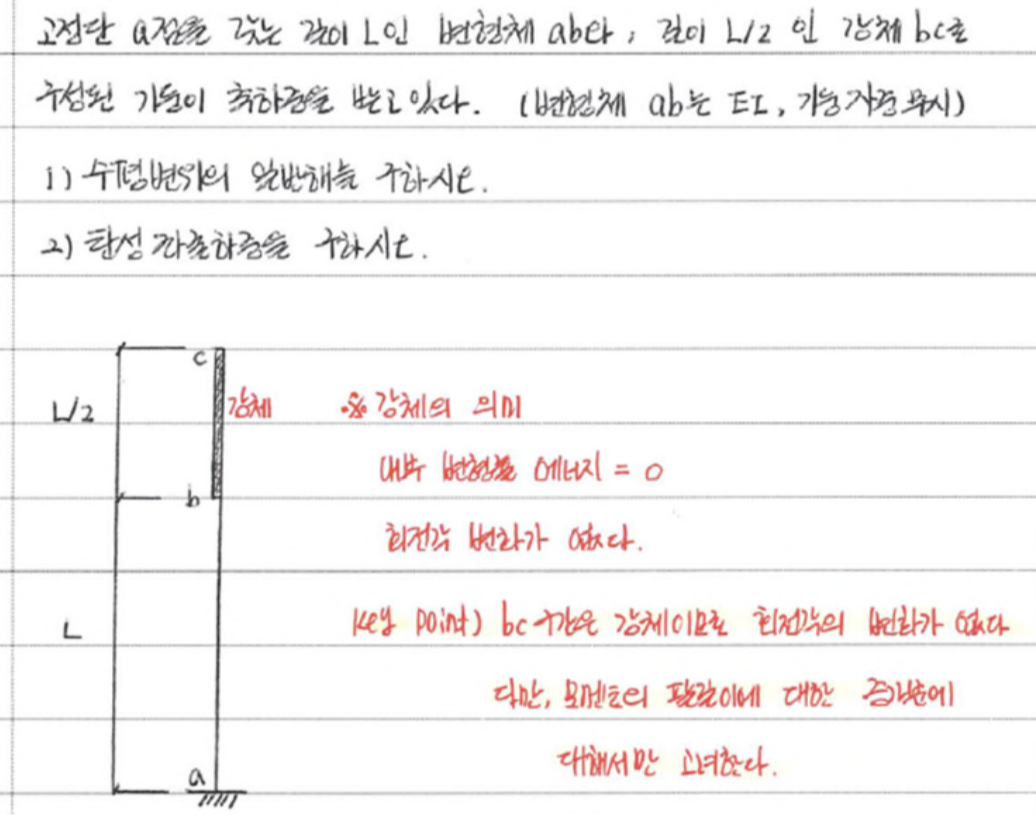 고정단 a점을 갖는 길이 L인 변형체 ab와, 길이 L/2 인 강체 bc로
구성된 기둥이 축하중을 받고 있다. (변형체 ab는 EI, 기둥자중 무시)
1) 수평변위의 일반해를 구하시오.
2) 탄성 좌굴하중을 구하시오.
c
L/2
강체
※ 강체의 의미
내부 변형률 에너지 = 0
b
회전각 변화가 없다.
L
key point) bc 구간은 강체이므로 회전각의 변화가 없다
다만, 모멘트의 팔길이에 대한 증가분에
대해서만 고려한다.
a